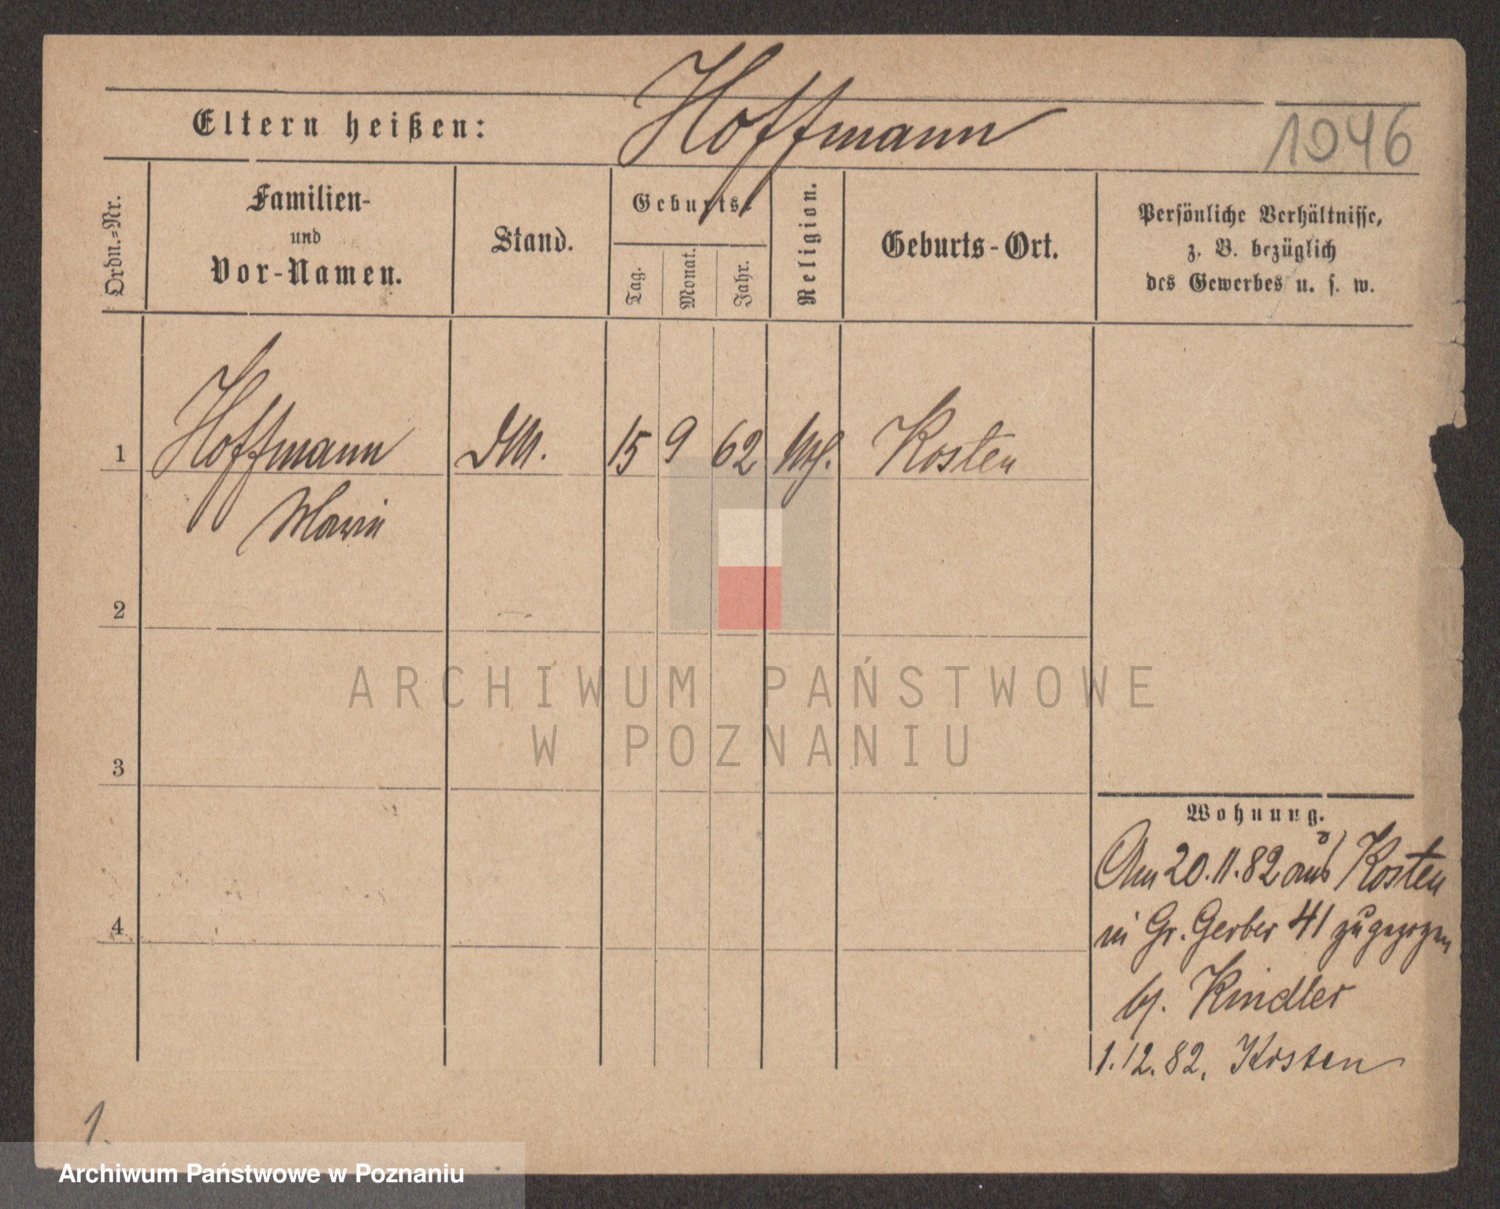 Eltern heißen: Hoffmann
1046
Ordn.-Nr.
Familien-
und
Vor-Namen.
Stand.
Geburts-
Tag.
Monat.
Jahr.
Religion.
Geburts-Ort.
Persönliche Verhältnisse,
z. B. bezüglich
des Gewerbes u. s. w.
1 Hoffmann DM. 15 9 62 Kosten
Marie
2
ARCHIWUM PAŃSTWOWE
W POZNANIU
3
Wohnung.
Am 20.11.82 aus Kosten
in Gr. Gerber 41 zugezogen
4
b/. Kindler
1.12.82. Kosten
1.
Archiwum Państwowe w Poznaniu